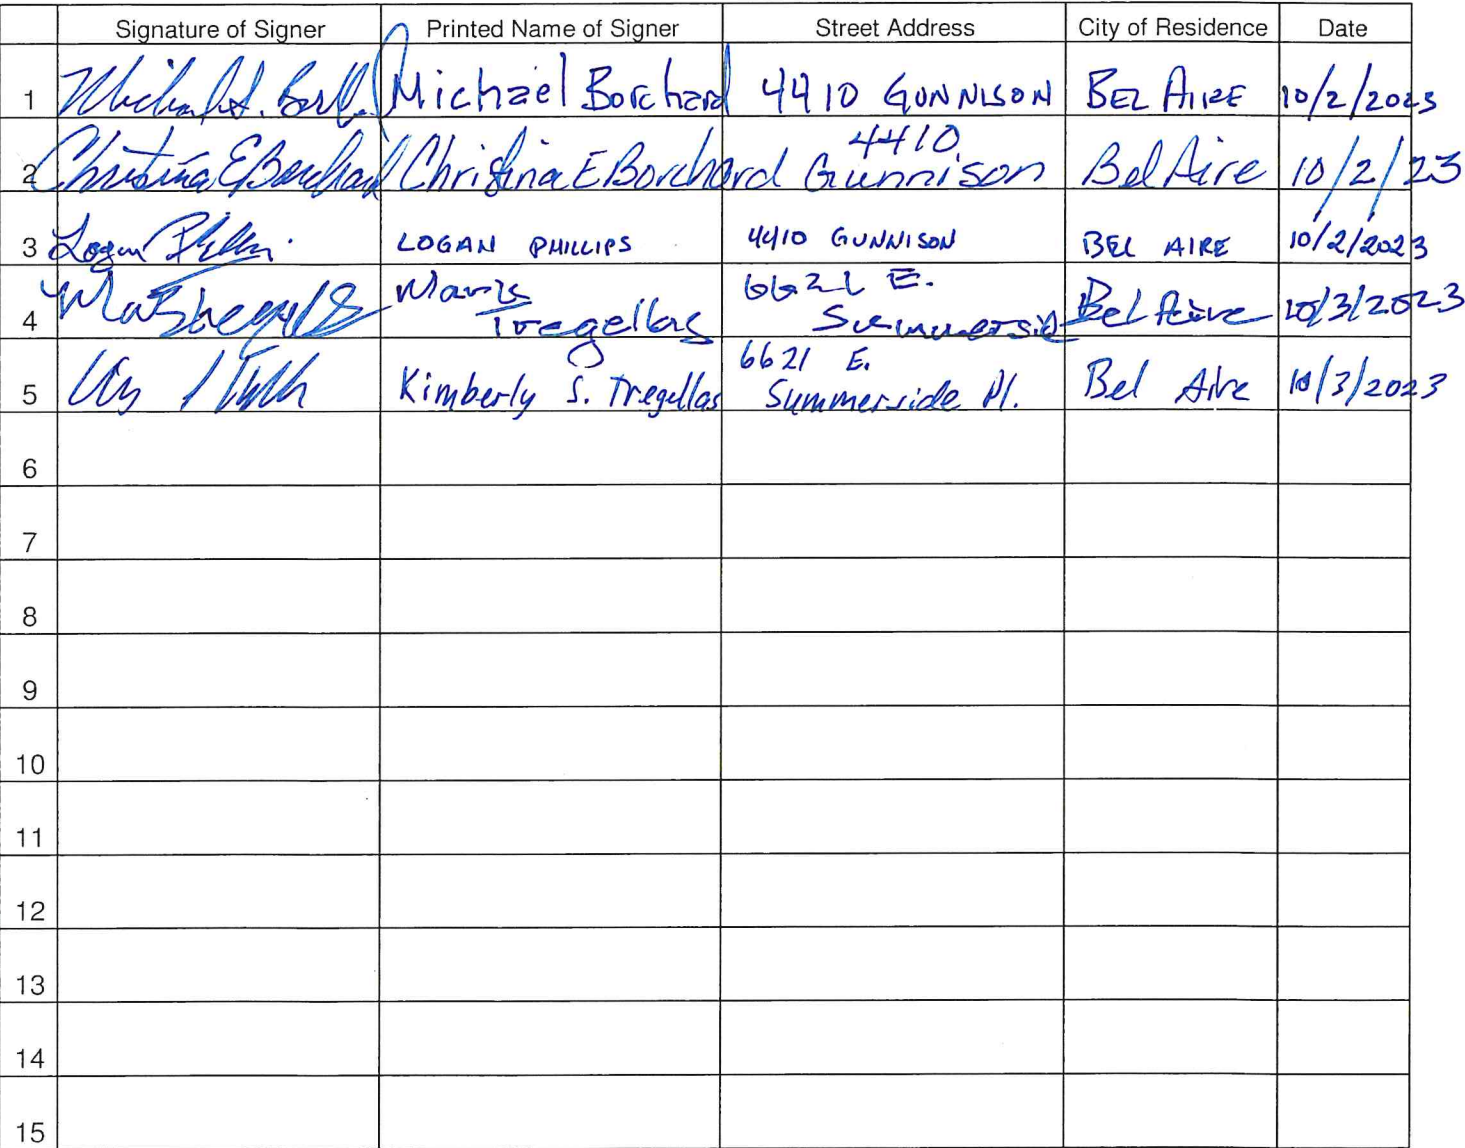 Signature of Signer Printed Name of Signer Street Address City of Residence Date
1 Michael Borchard 4410 GUNNISON BEL AIRE 10/2/2023
2 Christina E Borchard Christina E Borchard 4410 Gunnison Bel Aire 10/2/23
3 Logan Phillips LOGAN PHILLIPS 4410 GUNNISON BEL AIRE 10/2/2023
4 Mark Tregellas 6621 E. Summerside Bel Aire 10/3/2023
5 Kimberly S. Tregellas 6621 E. Summerside Pl. Bel Aire 10/3/2023
6
7
8
9
10
11
12
13
14
15